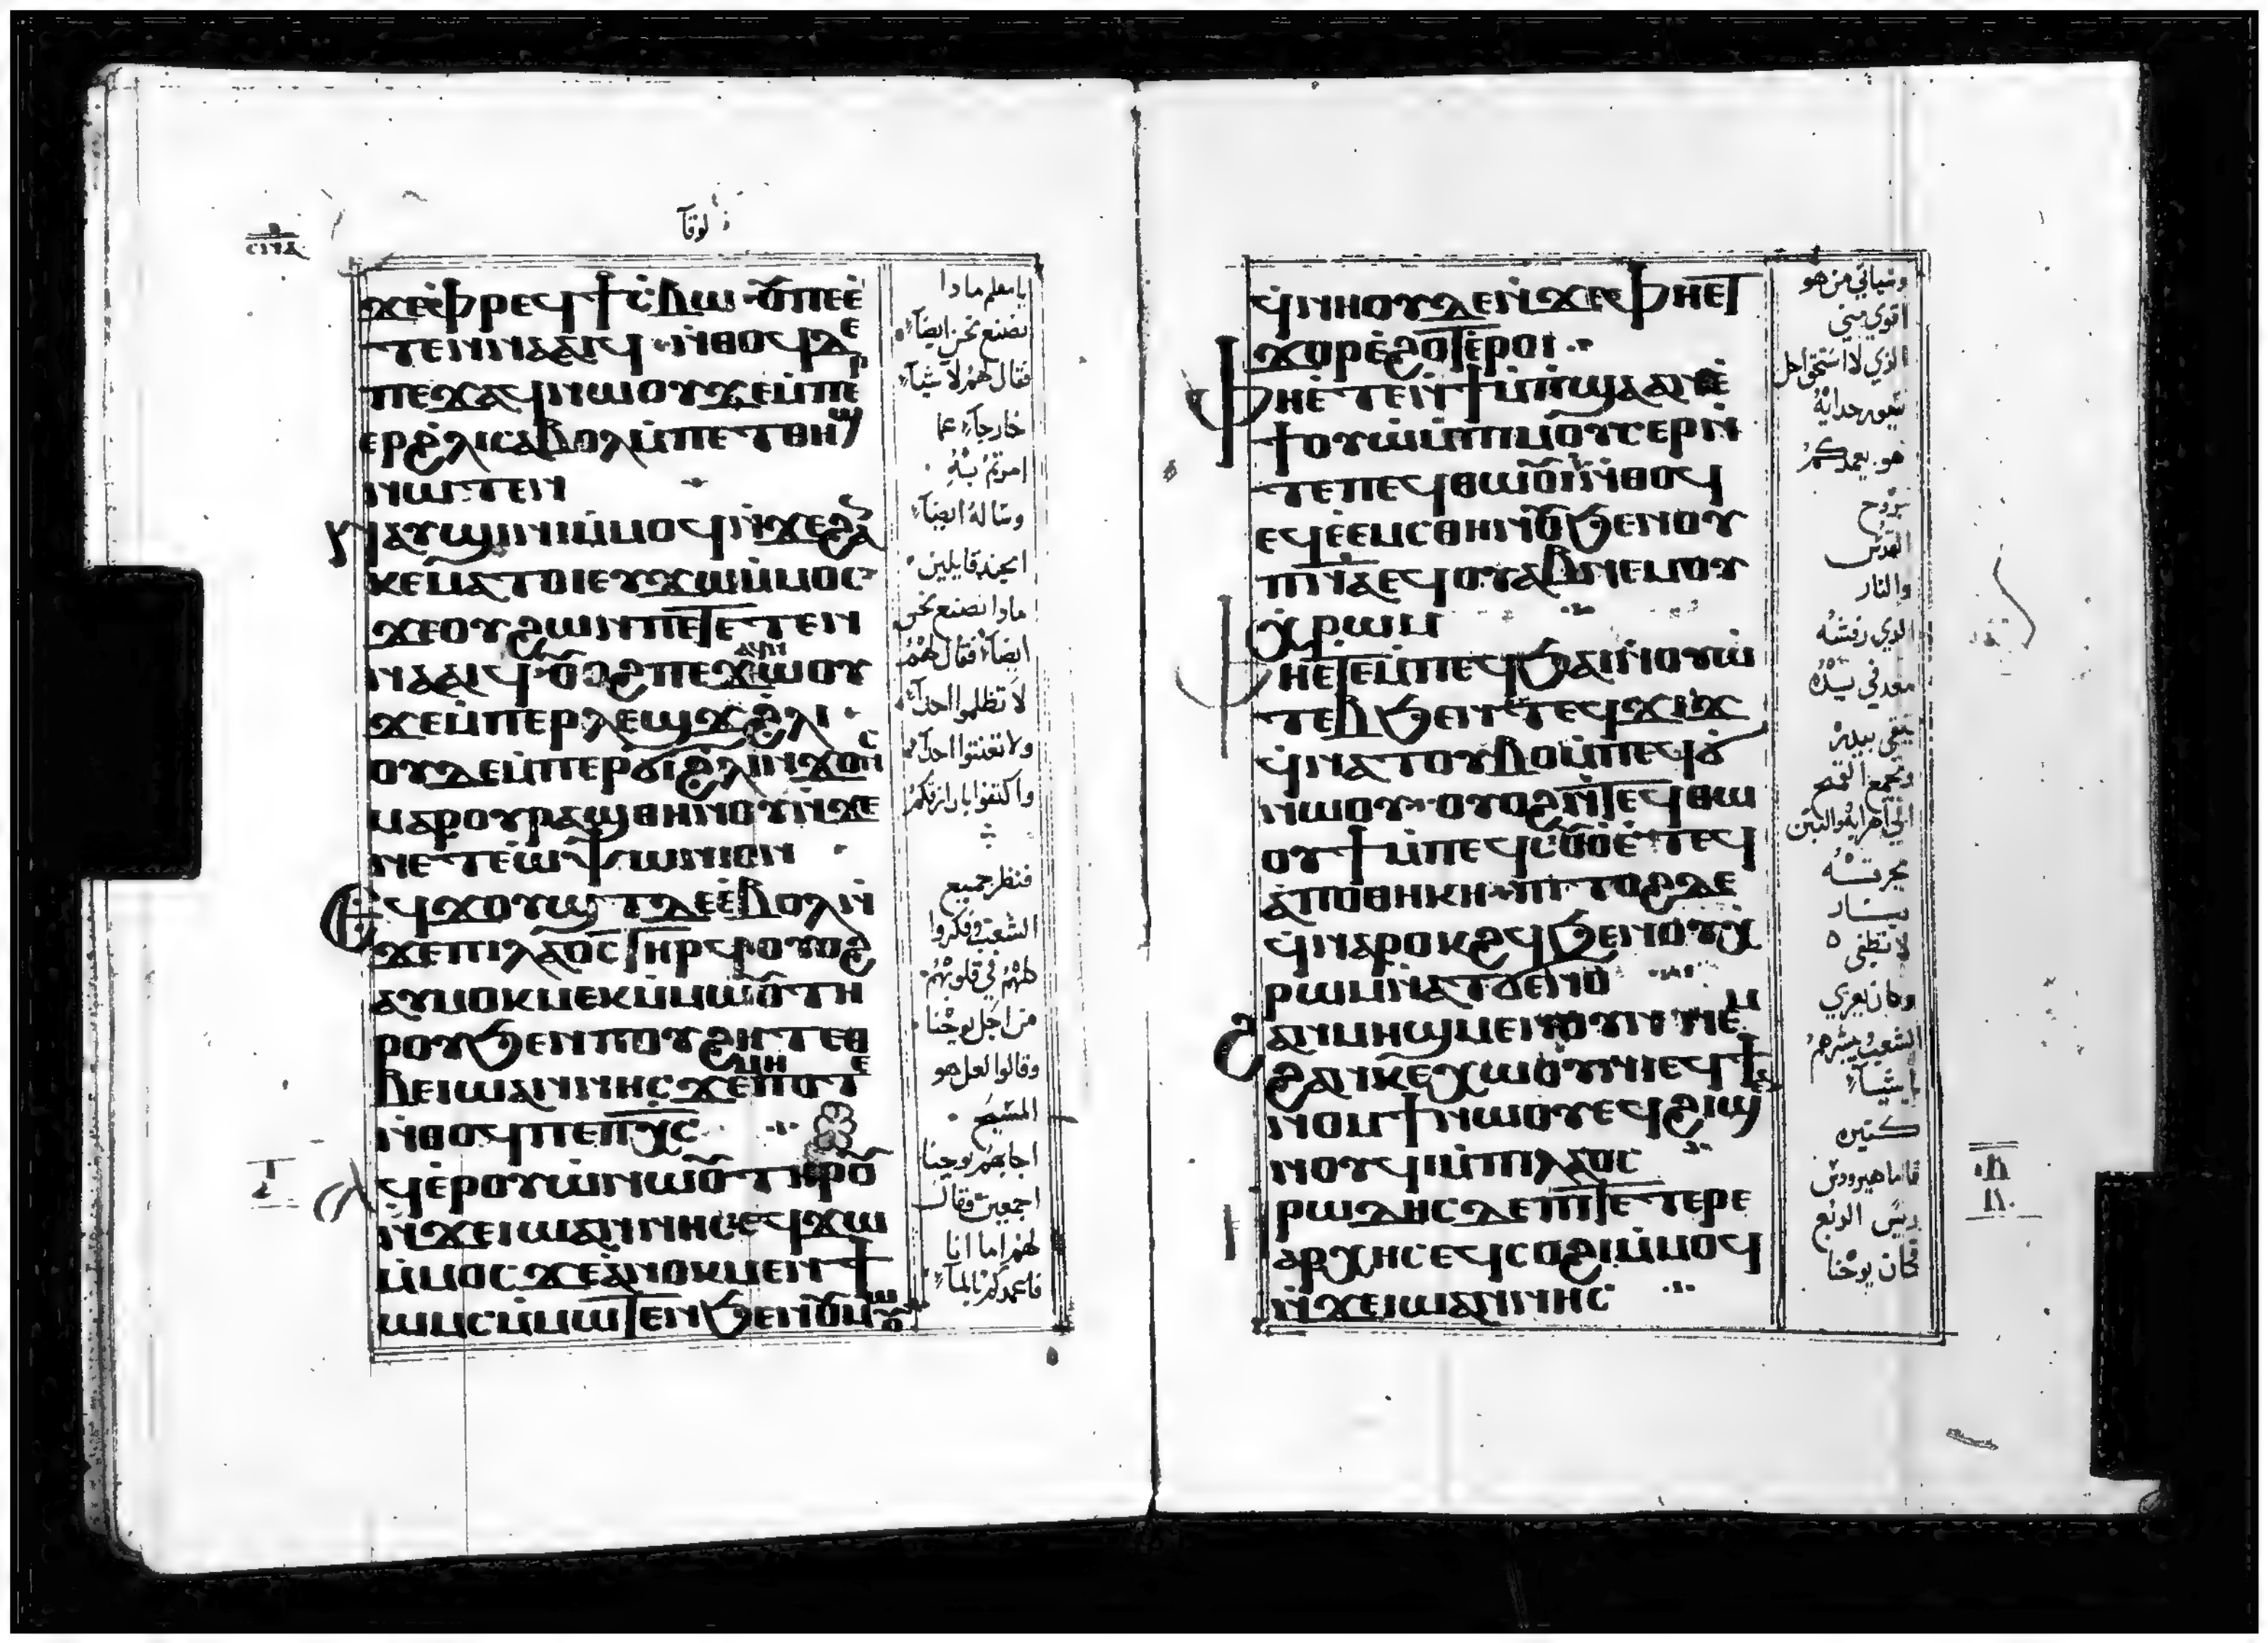 لوقا
ϫⲉⲫⲣⲉϥϯⲥⲃⲱ ⲟⲩⲡⲉⲉ̀
ⲧⲉⲛⲛⲁⲁⲓϥ ⲛ̀ⲑⲟϥⲇⲉ
ⲡⲉϫⲁϥⲛⲱⲟⲩϫⲉⲙ̀ⲡⲉⲣ
ⲉⲣϩ̀ⲗⲓⲥⲁⲃⲟⲗⲙ̀ⲡⲉⲧⲑⲏϣ
ⲛⲱⲧⲉⲛ
ⲛⲁⲩϣⲓⲛⲓⲙ̀ⲙⲟϥⲛ̀ϫⲉϩⲁⲛ
ⲕⲉⲙⲁⲧⲟⲓⲉⲩϫⲱⲙ̀ⲙⲟⲥ
ϫⲉⲟⲩϩⲱⲛⲡⲉⲧⲉⲧⲉⲛ
ⲛⲁⲁⲓϥ ⲟⲩⲟϩⲡⲉϫⲁϥⲛⲱⲟⲩ
ϫⲉⲙ̀ⲡⲉⲣⲗⲉϣϫⲉϩ̀ⲗⲓ
ⲟⲩⲇⲉⲙ̀ⲡⲉⲣϭⲓϩ̀ⲗⲓⲛ̀ϫⲟⲛⲥ
ⲙⲁⲣⲟⲩⲣⲁϣⲑⲏⲛⲟⲩⲛ̀ϫⲉ
ⲛⲉⲧⲉⲛⲟⲯⲱⲛⲓⲟⲛ
ⲉϥϫⲟⲩϣⲧⲇⲉⲉ̀ⲃⲟⲗⲛ̀
ϫⲉⲡⲓⲗⲁⲟⲥⲧⲏⲣϥⲟⲩⲟϩ
ⲁⲩⲙⲟⲕⲙⲉⲕⲙ̀ⲙⲱⲟⲩⲧⲏ
ⲣⲟⲩϧⲉⲛⲡⲟⲩϩⲏⲧⲉⲑ
ⲃⲉⲓⲱⲁⲛⲛⲏⲥϫⲉⲙⲏⲡⲟⲧⲉ
ⲛ̀ⲑⲟϥⲡⲉⲡⲭ̅ⲥ̅
ⲁϥⲉ̀ⲣⲟⲩⲱ̀ⲛⲱⲟⲩⲧⲏⲣⲟⲩ
ⲛ̀ϫⲉⲓⲱⲁⲛⲛⲏⲥⲉϥϫⲱ
ⲙ̀ⲙⲟⲥϫⲉⲁ̀ⲛⲟⲕⲙⲉⲛϯ
ⲱⲙⲥⲙ̀ⲙⲱⲧⲉⲛϧⲉⲛⲟⲩⲙⲱⲟⲩ
يا معلم مادا
نصنع نحن ايضآ
فقال لهم لا شيآ
خارجآ عما
امرتم به
وساله ايضآ
الجند قايلين
مادا نصنع نحن
ايضآ فقال لهم
لا تظلموا احدآ
ولا تعنتوا احدآ
واكتفوا بارزاقكم
فنظر جميع
الشعب وفكروا
كلهم في قلوبهم
من اجل يوحنا
وقالوا لعل هو
المسيح
اجابهم يوحنا
اجمعين فقال
لهم اما انا
فاعمدكم بالمآ
ϥⲛⲏⲟⲩⲇⲉⲛ̀ϫⲉⲫⲏⲉⲧ
ϫⲟⲣⲉ̀ϩⲟⲧⲉ̀ⲣⲟⲓ
ⲫⲏⲉ̀ⲧⲉⲛ̀ϯⲙ̀ⲡϣⲁⲁⲛⲉ̀
ϯⲟⲩⲱ̀ⲙ̀ⲡⲙⲟⲩⲥⲉⲣⲛ̀
ⲧⲉⲡⲉϥⲑⲱⲟⲩⲓ̀ⲛ̀ⲑⲟϥ
ⲉϥⲉ̀ⲉⲙⲥⲑⲏⲛⲟⲩϧⲉⲛⲟⲩ
ⲡ̅ⲛ̅ⲁ̅ⲉϥⲟⲩⲁⲃⲛⲉⲙⲟⲩ
ⲭ̀ⲣⲱⲙ
ⲫⲏⲉⲧⲉⲙ̀ⲡⲉϥϧⲁⲓⲛ̀ⲟⲩⲱ̀
ⲧⲉⲃϧⲉⲛⲧⲉϥϫⲓϫ
ϥⲛⲁⲧⲟⲩⲃⲟⲙ̀ⲡⲉϥϭ
ⲛⲱⲟⲩ ⲟⲩⲟϩⲛ̀ⲧⲉϥⲑⲱ
ⲟⲩϯⲙ̀ⲡⲉϥⲥⲟⲩⲟⲉ̀ⲧⲉϥ
ⲁ̀ⲡⲟⲑⲏⲕⲏ ⲡⲓⲧⲟϩⲇⲉ
ϥⲛⲁⲣⲟⲕϩϥϧⲉⲛⲟⲩⲭ̀
ⲣⲱⲙⲛ̀ⲁⲧϭⲉⲛⲟ
ϩⲁⲛⲙⲏϣⲙⲉⲛⲟⲩⲛⲛⲉⲙ
ϩⲁⲛⲕⲉⲭⲱⲟⲩⲛⲓⲉϥϯ
ⲛⲟⲙϯⲛⲱⲟⲩⲉϥϩⲓϣⲉⲛ
ⲛⲟⲩϥⲓⲙ̀ⲡⲓⲗⲁⲟⲥ
ⲏⲣⲱⲇⲏⲥⲇⲉⲡⲓⲧⲉⲧⲣⲉ
ⲁⲣⲭⲏⲥⲉϥⲥⲟϩⲓⲙ̀ⲙⲟϥ
ⲛ̀ϫⲉⲓⲱⲁⲛⲛⲏⲥ
وسياتي من هو
اقوي مني
الذي لا استحق احل
سيور حداية
هو يعمدكم
بروح
القدس
والنار
الدي رفشه
بيده
ينقي بيدره
ويجمع القمح
الي اهرايه والتبن
يحرقه
بنار
لا تطفي
وكان يعزي
الشعب يبشرهم
باشيآ
كثيره
فاما هيرودس
رييس الربع
فكان يوحنا